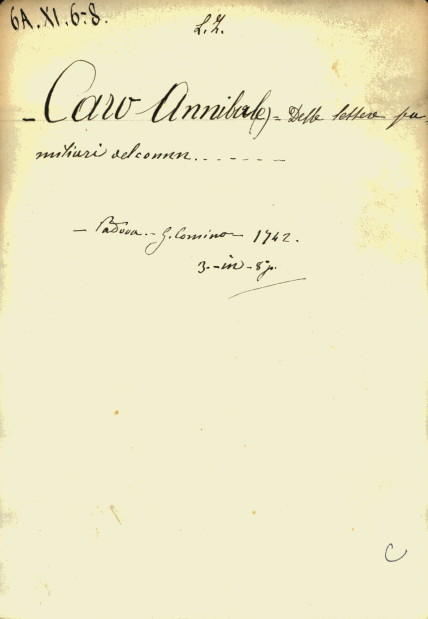 6A.XI.6-8.
L.Z.
- Caro Annibale) = Delle lettere fa-
miliari del comm.......
- Padova.- G. Comino 1742.
3.-in-8º.
C